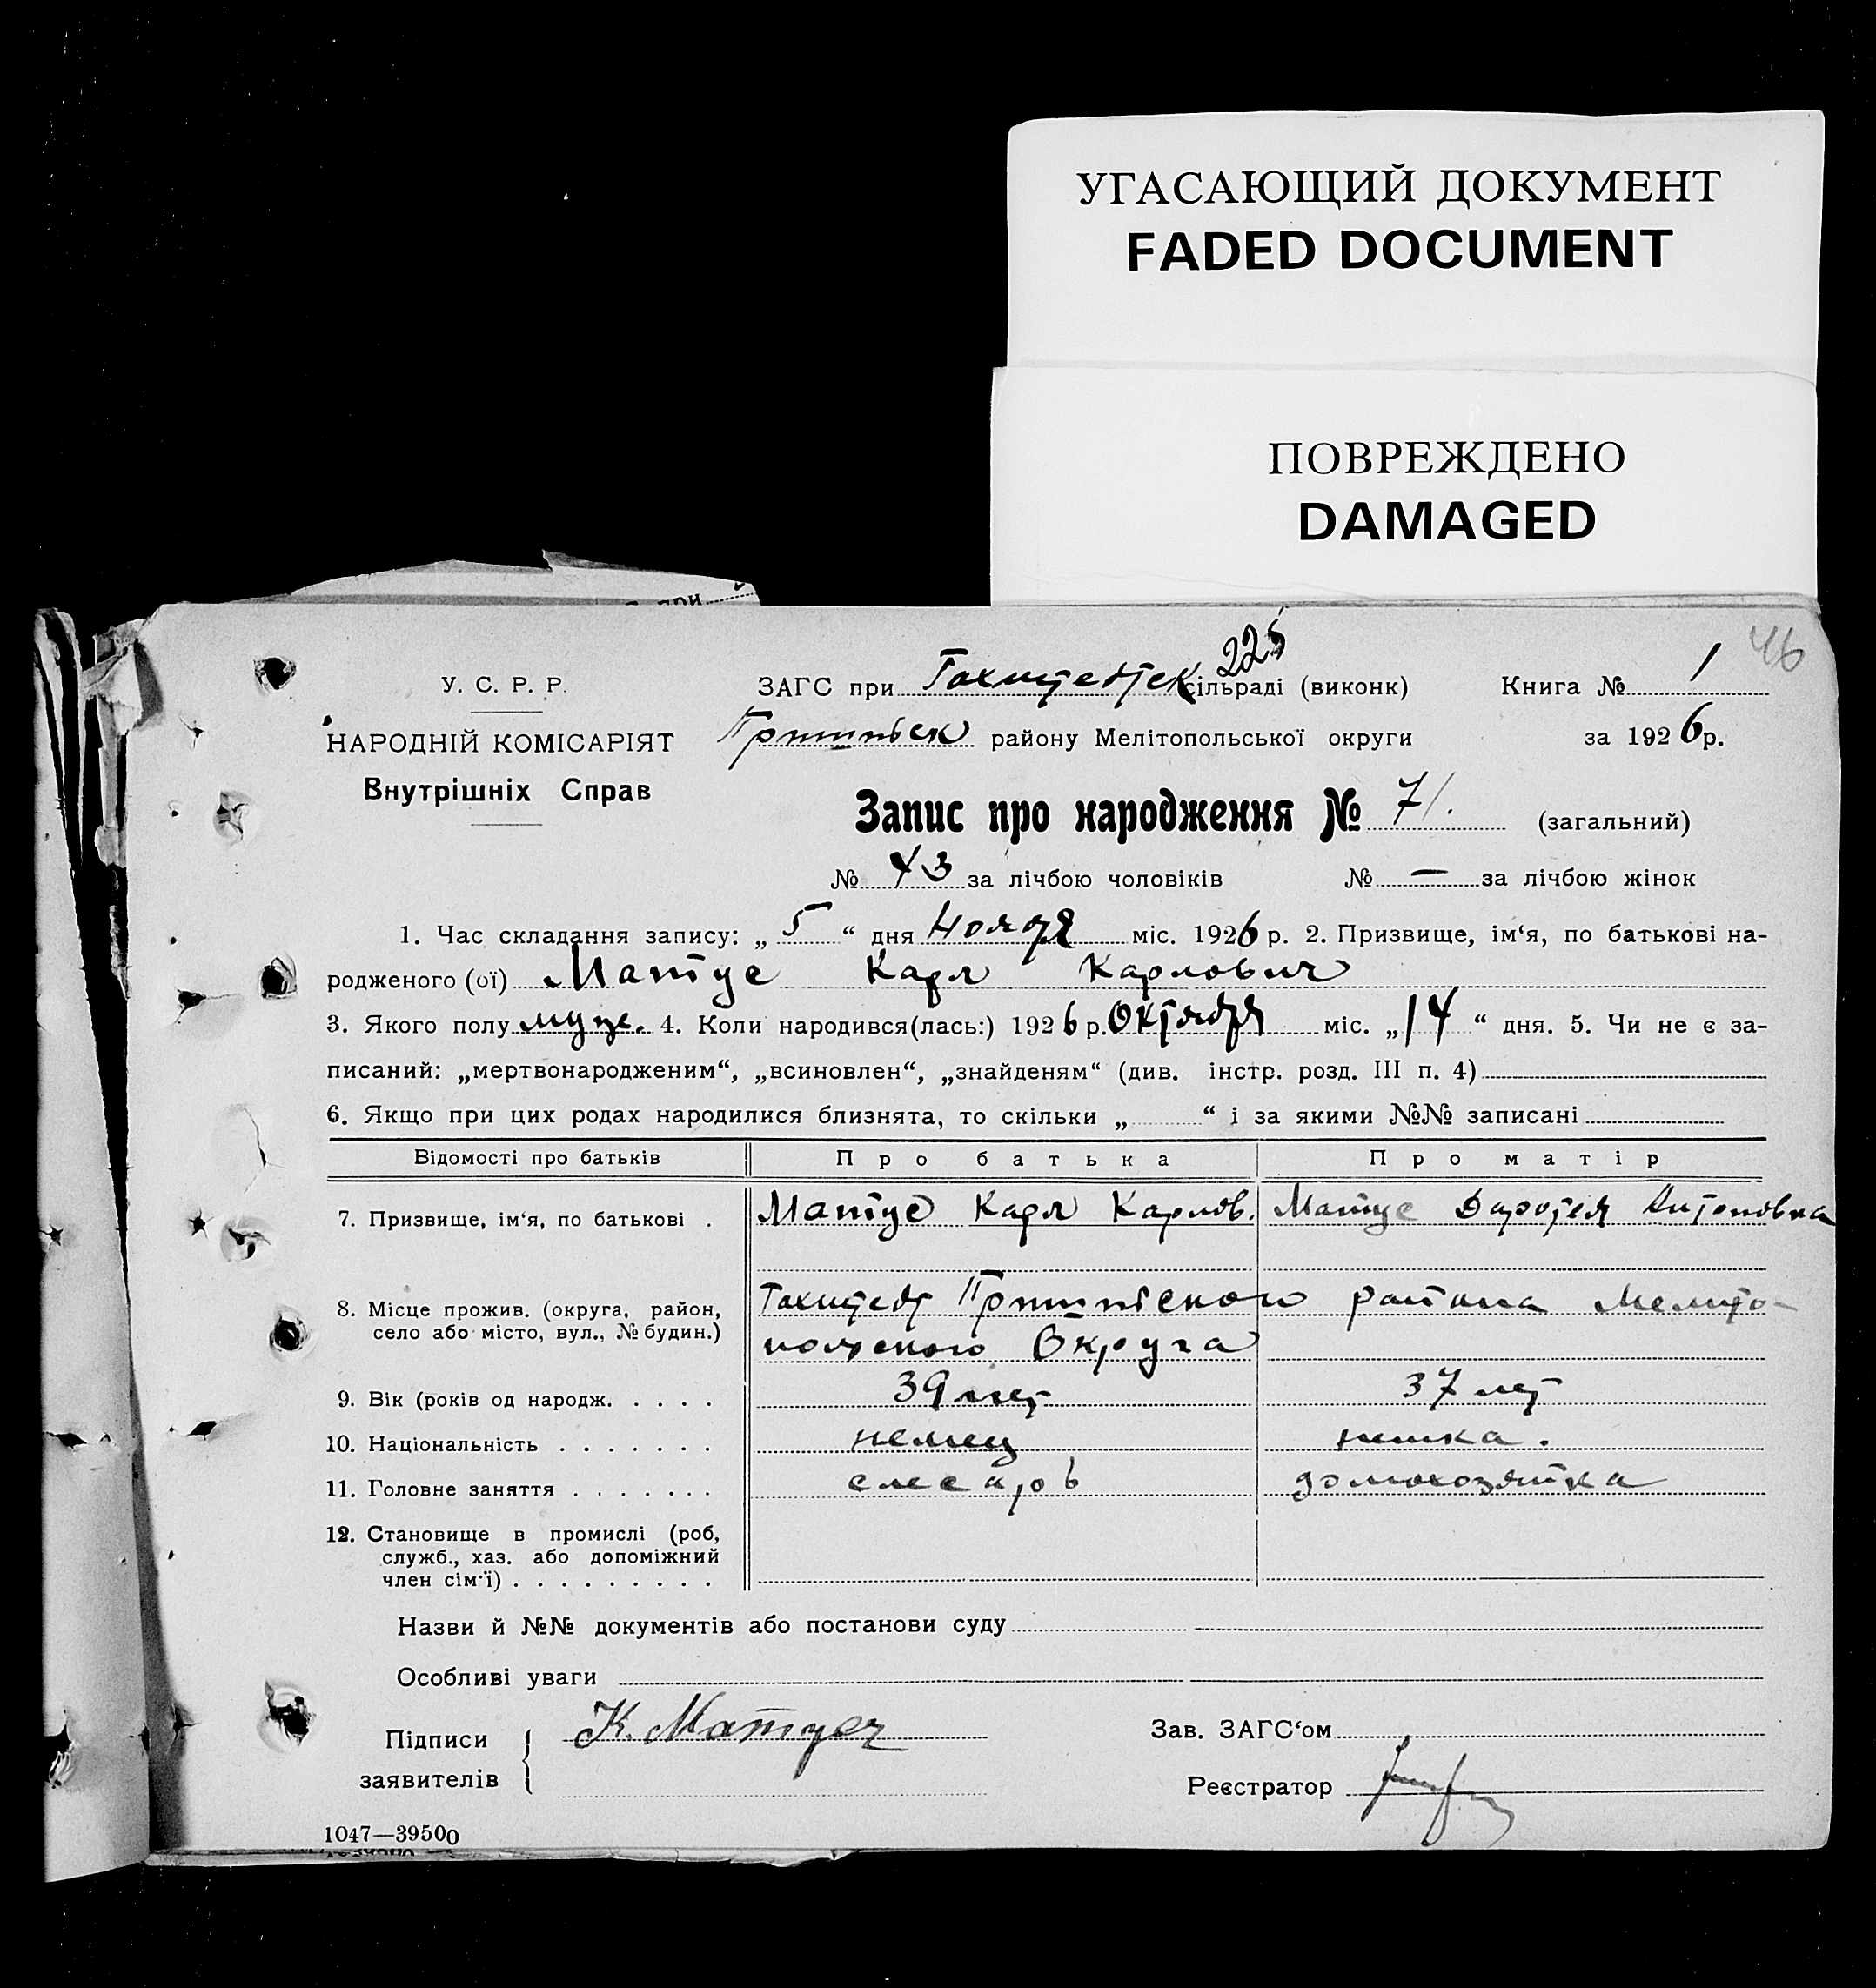 УГАСАЮЩИЙ ДОКУМЕНТ
FADED DOCUMENT
ПОВРЕЖДЕНО
DAMAGED
при
46
225
У. С. Р. Р.
ЗАГС при Гохштедтск сільраді (виконк) Книга № 1
НАРОДНІЙ КОМІСАРІЯТ
Пришибск району Мелітопольської округи за 1926 р.
Внутрішніх Справ
Запис про народження № 71. (загальний)
№ 43 за лічбою чоловіків № — за лічбою жінок
1. Час складання запису: „ 5 “ дня Ноября міс. 1926 р. 2. Призвище, ім‘я, по батькові на-
родженого (ої) Матуе Карл Карлович
3. Якого полу муж. 4. Коли народився(лась:) 1926 р. Октября міс. „14“ дня. 5. Чи не є за-
писаний: „мертвонародженим“, „всиновлен“, „знайденям“ (див. інстр. розд. III п. 4)
6. Якщо при цих родах народилися близнята, то скільки „ “ і за якими №№ записані
Відомості про батьків Про батька Про матір
7. Призвище, ім‘я, по батькові . Матуе Карл Карлов. Матуе Доротея Антоновна
8. Місце прожив. (округа, район, Гохштедт Пришибского района Мелито-
село або місто, вул., № будин.) польского Округа
9. Вік (років од народж. . . . . 39 лет 37 лет
10. Національність . . . . . . . немец немка.
11. Головне заняття . . . . . . . слесарь домохозяйка
12. Становище в промислі (роб,
служб., хаз. або допоміжний
член сім‘ї) . . . . . . . . .
Назви й №№ документів або постанови суду
Особливі уваги
Підписи К. Матуе Зав. ЗАГС‘ом
заявителів Реєстратор
1047—39500